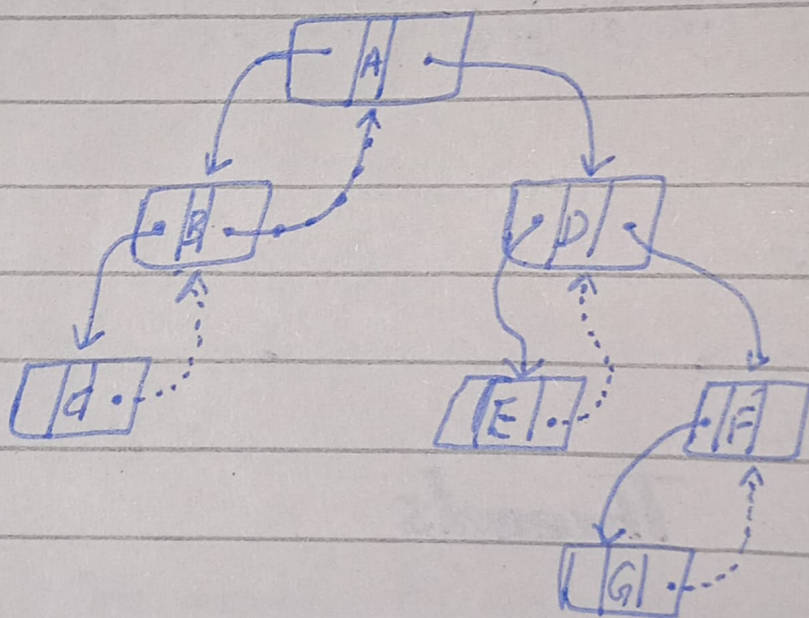 A
B
D
C
E
F
G